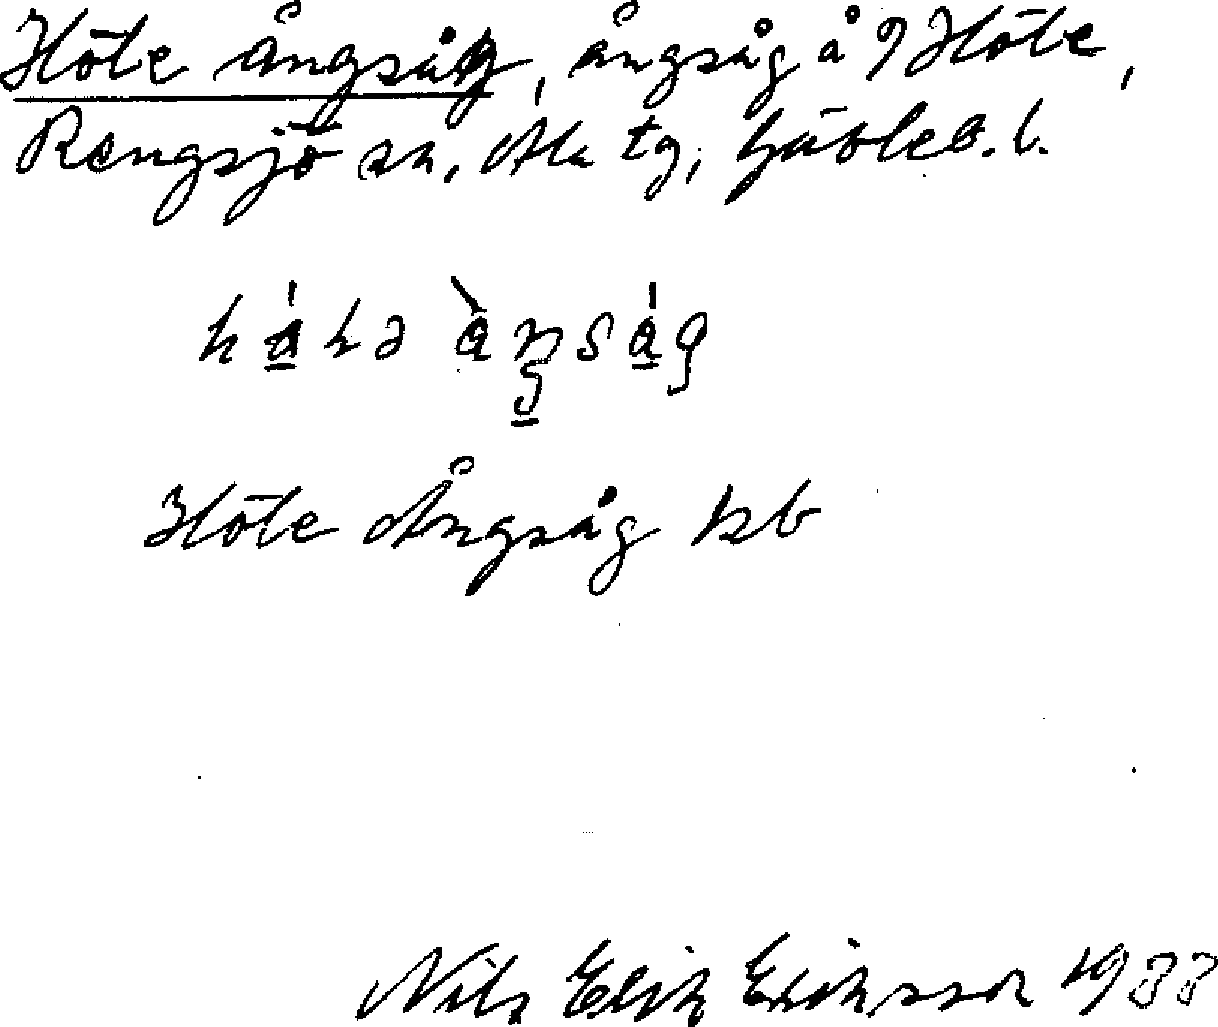 Höle ångsåg, ångsåg å ? Höle,
Rengsjö sn, Ala tg, Gävleb. l.
Höle Ångsåg kb
Nils Erik Eriksson 1933